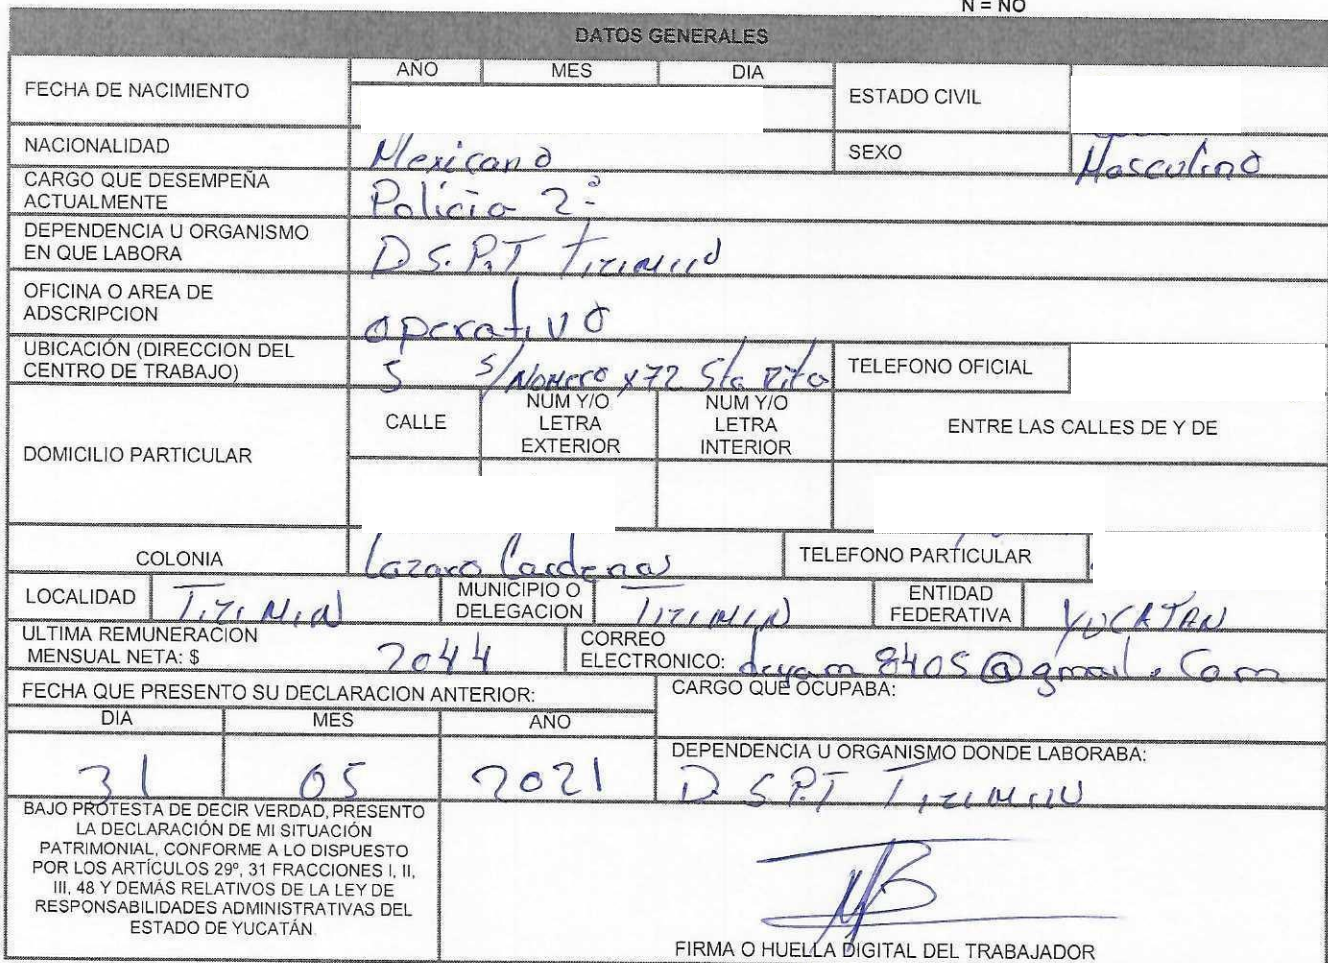 N = NO
DATOS GENERALES
FECHA DE NACIMIENTO
AÑO MES DIA
ESTADO CIVIL
NACIONALIDAD Mexicano SEXO Masculino
CARGO QUE DESEMPEÑA
ACTUALMENTE
Policia 2ª
DEPENDENCIA U ORGANISMO
EN QUE LABORA
D.S.P.T Tizimin
OFICINA O AREA DE
ADSCRIPCION
operativo
UBICACIÓN (DIRECCION DEL
CENTRO DE TRABAJO)
5 S/Numero x72 Sta Rita
TELEFONO OFICIAL
DOMICILIO PARTICULAR
CALLE
NUM Y/O
LETRA
EXTERIOR
NUM Y/O
LETRA
INTERIOR
ENTRE LAS CALLES DE Y DE
COLONIA Lazaro Cardenas TELEFONO PARTICULAR
LOCALIDAD Tizimin
MUNICIPIO O
DELEGACION
Tizimin
ENTIDAD
FEDERATIVA
YUCATAN
ULTIMA REMUNERACION
MENSUAL NETA: $ 2044
CORREO
ELECTRONICO: deyam8405@gmail.com
FECHA QUE PRESENTO SU DECLARACION ANTERIOR:
CARGO QUE OCUPABA:
DIA MES AÑO
31 05 2021
DEPENDENCIA U ORGANISMO DONDE LABORABA:
D.S.P.T Tizimin
BAJO PROTESTA DE DECIR VERDAD, PRESENTO
LA DECLARACIÓN DE MI SITUACIÓN
PATRIMONIAL, CONFORME A LO DISPUESTO
POR LOS ARTÍCULOS 29º, 31 FRACCIONES I, II,
III, 48 Y DEMÁS RELATIVOS DE LA LEY DE
RESPONSABILIDADES ADMINISTRATIVAS DEL
ESTADO DE YUCATÁN
FIRMA O HUELLA DIGITAL DEL TRABAJADOR